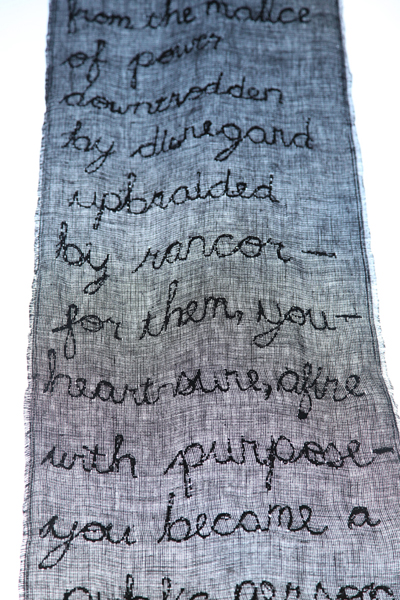 from the malice
of power
downtrodden
by disregard
upbraided
by rancor —
for them, you —
heart-sure, afire
with purpose —
you became a
public person